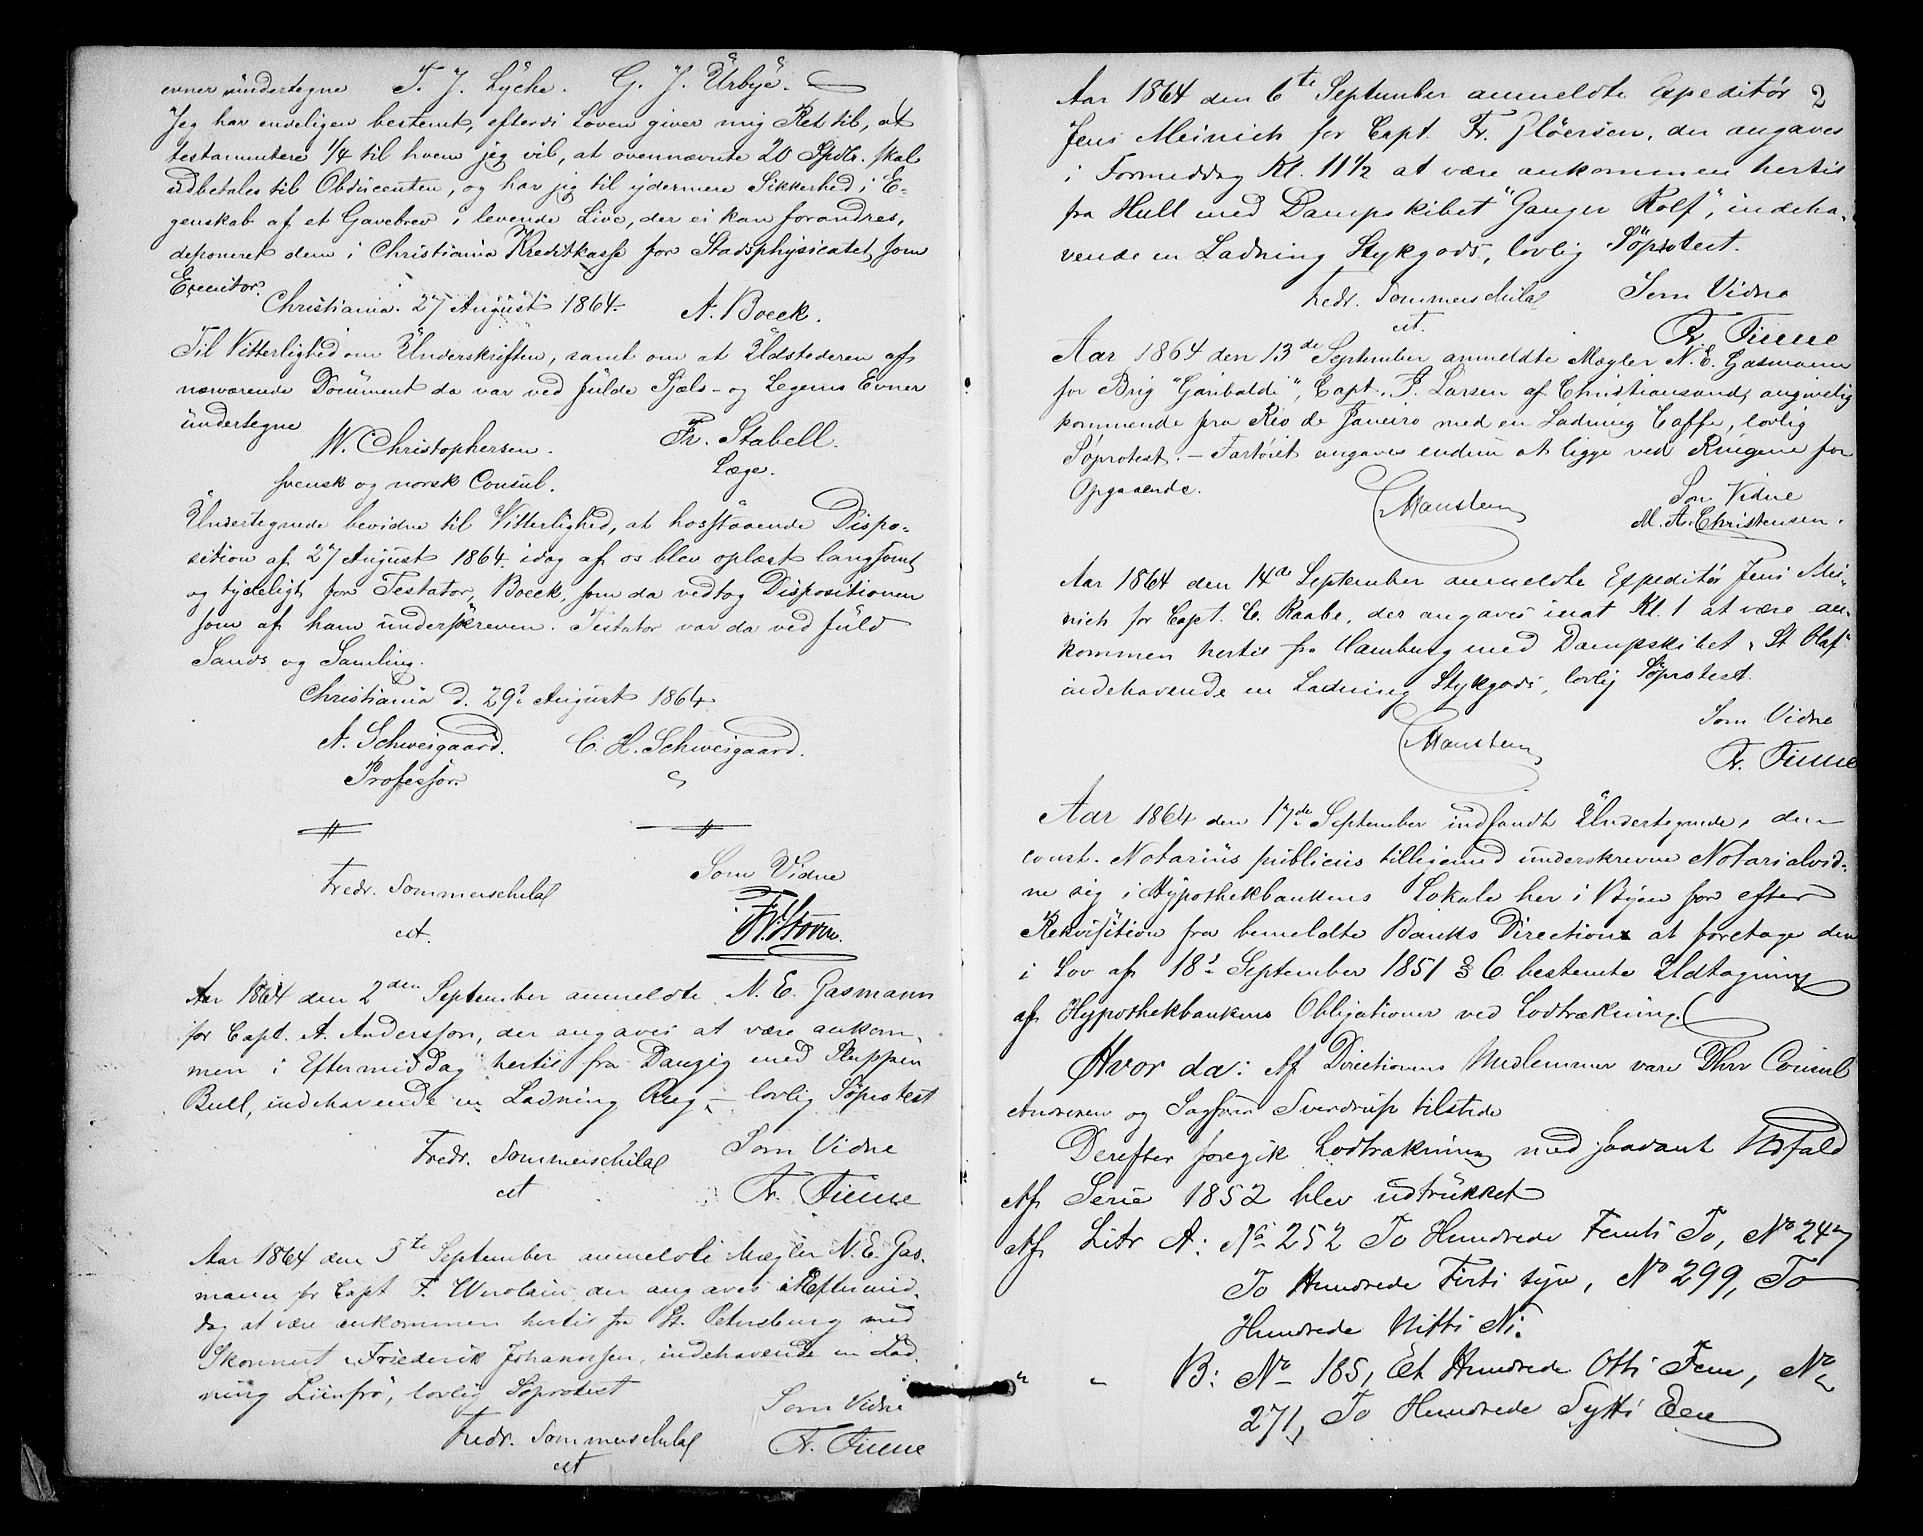 evner undertegne T. J. Lyche. G. J. Urbye.
Jeg har endeligen bestemt, efterdi Loven giver mig Ret til, at
testamentere 1/4 til hvem jeg vil, at ovennævnte 20 Spdlr. skal
udbetales til Obducenten, og har jeg til ydermere Sikkerhed i E-
genskab af et Gavebrev i levende Live, der ei kan forandres,
deponeret dem i Christiania Kreditkasse for Stadsphysicatet som
Executor.
Christiania. 27 August 1864. A. Boeck.
Til Vitterlighed om Underskriften, samt om at Udstederen af
nærværende Document da var ved fulde Sjæls- og Legems Evner
undertegne
W. Christophersen. Fr. Stabell.
svensk og norsk Consul. Læge.
Undertegnede bevidne til Vitterlighed, at hosstaaende Dispo-
sition af 27 August 1864 idag af os blev oplæst langsomt
og tydeligt for Testator, Boeck, som da vedtog Dispositionen
som af ham underskreven. Testator var da ved fuld
Sands og Samling.
Christiania d. 29. August 1864
A. Schweigaard. C. H. Schweigaard.
Professor.
Fredr. Sommerschild Som Vidne
cst.
Aar 1864 den 2den September anmeldte N. E. Gasmann
for Capt. A. Andersson, der angaves at være ankom-
men i Eftermiddag hertil fra Danzig med Skuppen
Bull, indehavende en Ladning Rug, - lovlig Søprotest
Fredr. Sommerschild Som Vidne
cst
Aar 1864 den 5te September anmeldte Mægler N. E. Gas-
mann for Capt F. der angaves i Eftermid-
dag at være ankommen hertil fra St. Petersburg med
Skonnert "Friederik Johanssen, indehavende en Lad-
ning Liinfrø, lovlig Søprotest
Som Vidne
Fredr. Sommerschild
cst
2
Aar 1864 den 6te September anmeldte Expeditør
Jens Meinich for Capt. Fr. Gløersen, der angaves
i Formiddag Kl. 11 1/2 at være ankommen hertil
fra Hull med Dampskibet "Ganger Rolf", indeha-
vende en Ladning Stykgods, lovlig Søprotest.
Fredr. Sommerschild Som Vidne
cst.
Aar 1864 den 13de September anmeldte Mægler N. E. Gasmann
for Brig "Garibaldi", Capt. J. Larsen af Christiansand, angivelig
kommende fra Rio de Janeiro med en Ladning Caffe, lovlig
Søprotest. - Fartøiet angaves endnu at ligge ved Ringene for
Opgaaende.
Som Vidne
M. A. Christensen.
Aar 1864 den 14de September anmeldte Expeditør Jens Mei-
nich for Capt. C. Raabe, der angaves inat Kl. 1 at være an-
kommen hertil fra Hamburg med Dampskibet "St Olaf"
indehavende en Ladning Stykgods, lovlig Søprotest.
Som Vidne
Aar 1864 den 17de September indfandt Undertegnede, den
const. Notarius publicus tilligemed underskrevne Notarialvid-
ne sig i Hypothekbankens Lokale her i Byen for efter
Rekvisition fra bemeldte Banks Direction at foretage den
i Lov af 18. September 1851 § 6 bestemte Udtagning
af Hypothekbankens Obligationer ved Lodtrækning.
Hvor da: Af Directionens Medlemmer vare Dhrr Consul
Andresen og Sagfører Sverdrup tilstede
Derefter foregik Lodtrækning med saadant Udfald
Af Serie 1852 blev udtrukket
Af Litr A: No 252 To Hundrede Femti To, No 247
To Hundrede Firti syv, No 299, To
Hundrede Nitti Ni.
" " B: No 185, Et Hundrede Otti Fem, No
271, To Hundrede Sytti Een